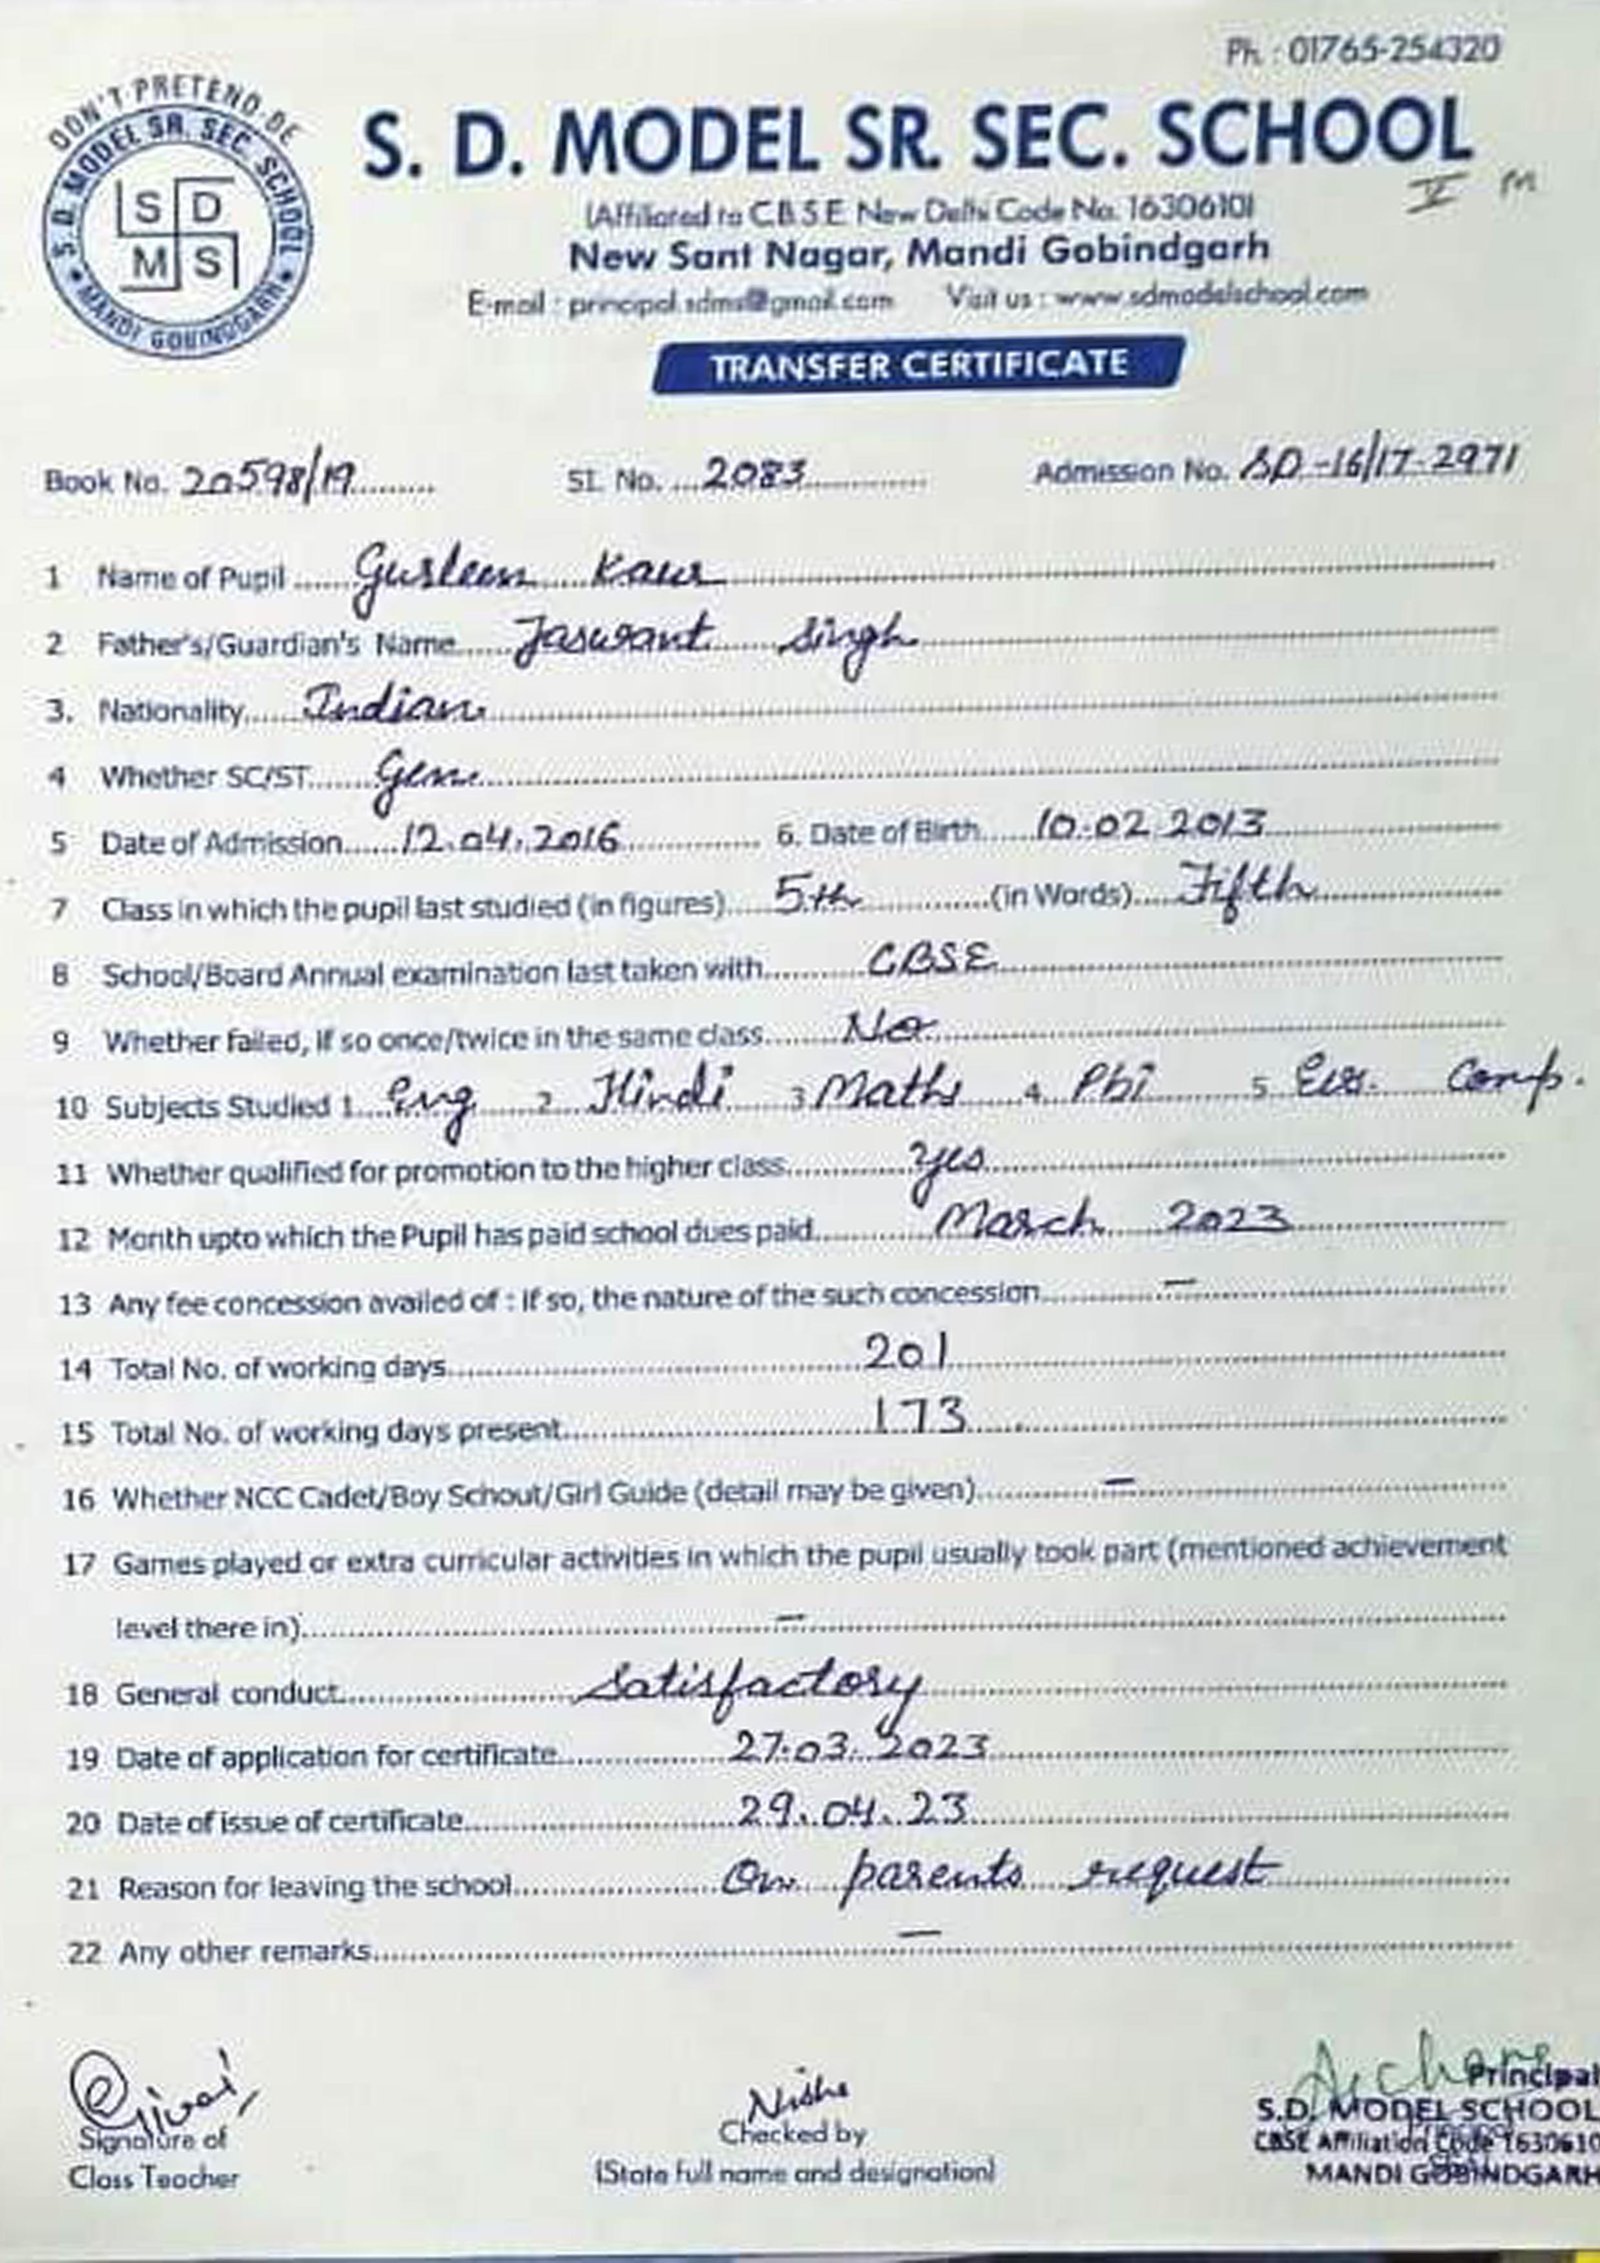 Ph. : 01765-254320
DON'T PRETEND BE
S. D. MODEL SR. SEC. SCHOOL
S D
M S
MANDI GOBINDGARH
S. D. MODEL SR. SEC. SCHOOL
V M
(Affiliored to C.B.S.E New Delhi Code No. 1630610)
New Sant Nagar, Mandi Gobindgarh
E-mail : principal.sdms@gmail.com Visit us : www.sdmodelschool.com
TRANSFER CERTIFICATE
Book No. 20598/19 SI. No. 2083 Admission No. SD-16/17-2971
1 Name of Pupil Gurleen Kaur
2 Father's/Guardian's Name Jaswant Singh
3. Nationality Indian
4 Whether SC/ST Gen
5 Date of Admission 12.04.2016 6. Date of Birth 10.02.2013
7 Class in which the pupil last studied (in figures) 5th (in Words) Fifth
8 School/Board Annual examination last taken with CBSE
9 Whether failed, if so once/twice in the same class No
10 Subjects Studied 1 Eng 2 Hindi 3 Maths 4 Pbi 5 Evs. Comp.
11 Whether qualified for promotion to the higher class Yes
12 Month upto which the Pupil has paid school dues paid March 2023
13 Any fee concession availed of : if so, the nature of the such concession —
14 Total No. of working days 201
15 Total No. of working days present 173
16 Whether NCC Cadet/Boy Schout/Girl Guide (detail may be given) —
17 Games played or extra curricular activities in which the pupil usually took part (mentioned achievement
level there in) —
18 General conduct Satisfactory
19 Date of application for certificate 27.03.2023
20 Date of issue of certificate 29.04.23
21 Reason for leaving the school On parents request
22 Any other remarks —
Nisha
Signature of
Class Teacher
Checked by
(State full name and designation)
Principal
S.D. MODEL SCHOOL
CBSE Affiliation Code 1630610
MANDI GOBINDGARH